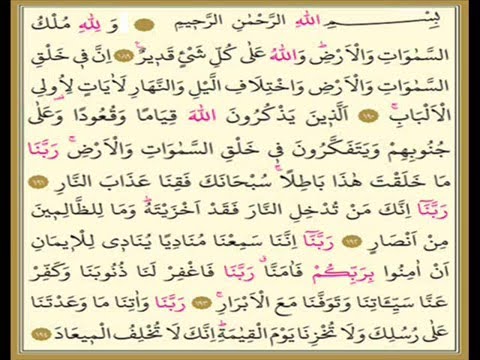 بِسْــــمِ اللهِ الرَّحْمٰنِ الرَّحٖيمِ ۞ وَلِلّٰهِ مُلْكُ
السَّمٰوَاتِ وَالْاَرْضِؕ وَاللهُ عَلٰى كُلِّ شَیْءٍ قَدٖيرٌ ﴿١٨٩﴾ اِنَّ فٖى خَلْقِ
السَّمٰوَاتِ وَالْاَرْضِ وَاخْتِلَافِ الَّيْلِ وَالنَّهَارِ لَاٰيَاتٍ لِاُولِى
الْاَلْبَابِۚ ﴿١٩٠﴾ اَلَّذٖينَ يَذْكُرُونَ اللهَ قِيَامًا وَقُعُودًا وَعَلٰى
جُنُوبِهِمْ وَيَتَفَكَّرُونَ فٖى خَلْقِ السَّمٰوَاتِ وَالْاَرْضِۚ رَبَّنَا
مَا خَلَقْتَ هٰذَا بَاطِلًاۚ سُبْحَانَكَ فَقِنَا عَذَابَ النَّارِ ﴿١٩١﴾
رَبَّنَٓا اِنَّكَ مَنْ تُدْخِلِ النَّارَ فَقَدْ اَخْزَيْتَهُؕ وَمَا لِلظَّالِمٖينَ
مِنْ اَنْصَارٍ ﴿١٩٢﴾ رَبَّنَٓا اِنَّنَا سَمِعْنَا مُنَادِيًا يُنَادٖى لِلْاٖيمَانِ
اَنْ اٰمِنُوا بِرَبِّكُمْ فَاٰمَنَّاۗ رَبَّنَا فَاغْفِرْ لَنَا ذُنُوبَنَا وَكَفِّرْ
عَنَّا سَيِّـَٔاتِنَا وَتَوَفَّنَا مَعَ الْاَبْرَارِۚ ﴿١٩٣﴾ رَبَّنَا وَاٰتِنَا مَا وَعَدْتَنَا
عَلٰى رُسُلِكَ وَلَا تُخْزِنَا يَوْمَ الْقِيٰمَةِؕ اِنَّكَ لَا تُخْلِفُ الْمٖيعَادَ ﴿١٩٤﴾